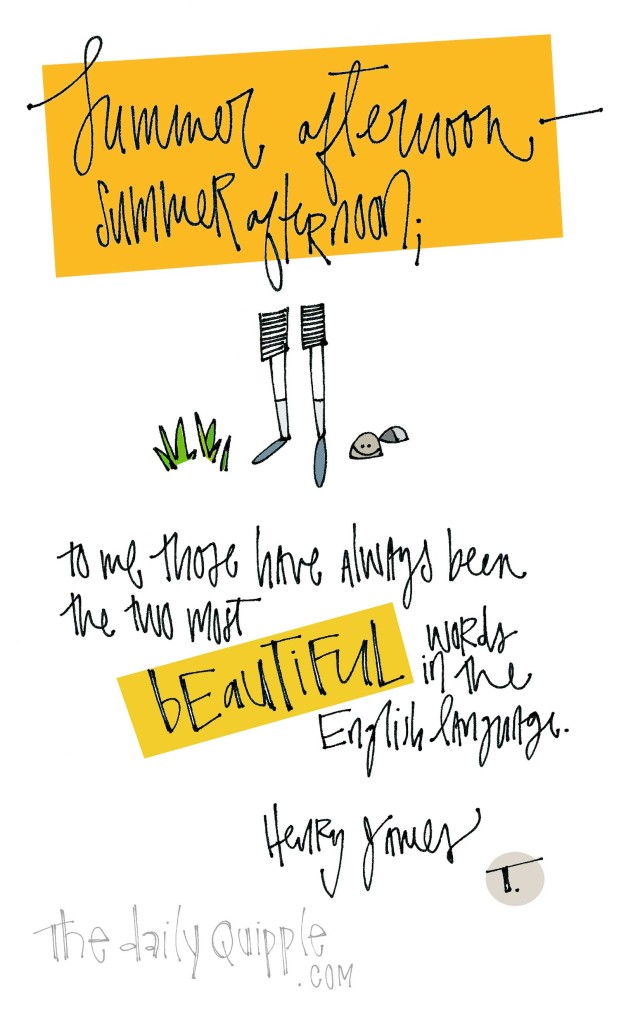 Summer afternoon —
summer afternoon;
to me, those have always been
the two most
beautiful
words
in the
English language.
Henry James
T.
The daily Quipple
.com